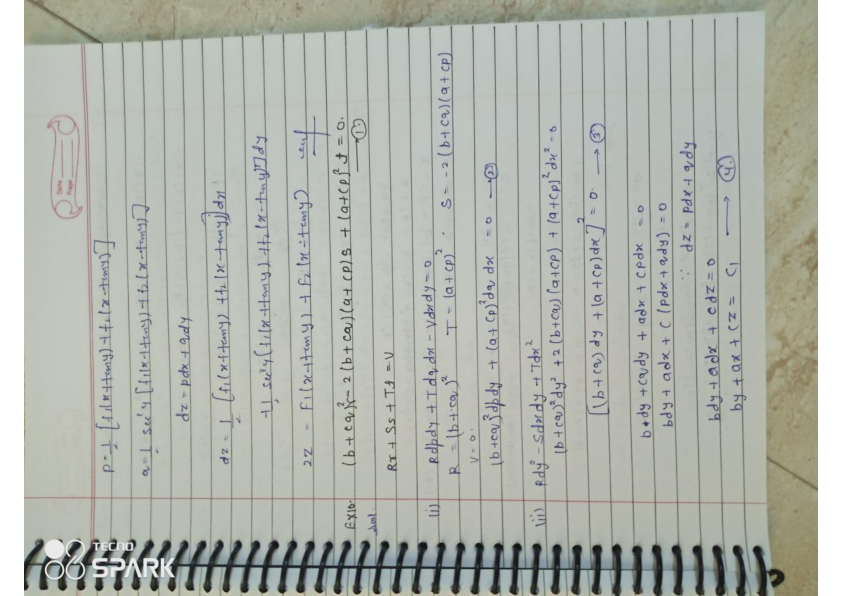 Date
Page
p = 1/2 [f1(x+tany) + f2(x-tany)]
q = 1/2 sec²y [f1(x+tany) - f2(x-tany)]
dz = pdx + qdy
dz = 1/2 [f1(x+tany) + f2(x-tany)] dx
+ 1/2 sec²y [f1(x+tany) - f2(x-tany)] dy
2z = F1(x+tany) + F2(x-tany)
Ex10. (b+cq)²r - 2(b+cq)(a+cp)s + (a+cp)² t = 0. → ①
Rr + Ss + Tt = V
(i) Rdpdy + Tdqdx - Vdxdy = 0
R = (b+cq)² T = (a+cp)² S = -2(b+cq)(a+cp)
V = 0.
(b+cq)²dpdy + (a+cp)²dq dx = 0 → ②
(ii) Rdy² - Sdxdy + Tdx²
(b+cq)²dy² + 2(b+cq)(a+cp) + (a+cp)²dx² = 0
[(b+cq)dy + (a+cp)dx]² = 0. → ③
bdy + cqdy + adx + cpdx = 0
bdy + adx + c(pdx + qdy) = 0
∵ dz = pdx + qdy
bdy + adx + cdz = 0
by + ax + cz = c1 → ④
TECNO
SPARK